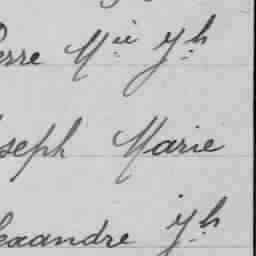 Pierre Mie Jh
Joseph Marie
Alexandre Jh